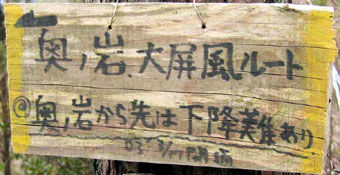 奥ノ岩、大屏風ルート
◎奥ノ岩から先は下降羡集あり